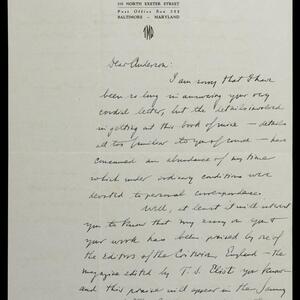 NORTH EXETER STREET
Post Office Box
BALTIMORE - MARYLAND
Dear Anderson:
I am sorry that I have
been so long in answering your very
cordial letter, but the details involved
in getting out this book of mine – details
all too familiar to you of course – have
consumed an abundance of my time
which under ordinary conditions were
devoted to personal correspondence.
Well, at least it will interest
you to know that my essay on you &
your work has been praised by one of
the editors of the Criterion, England – the
magazine edited by T. S. Eliot, you know –
and this praise will appear in the